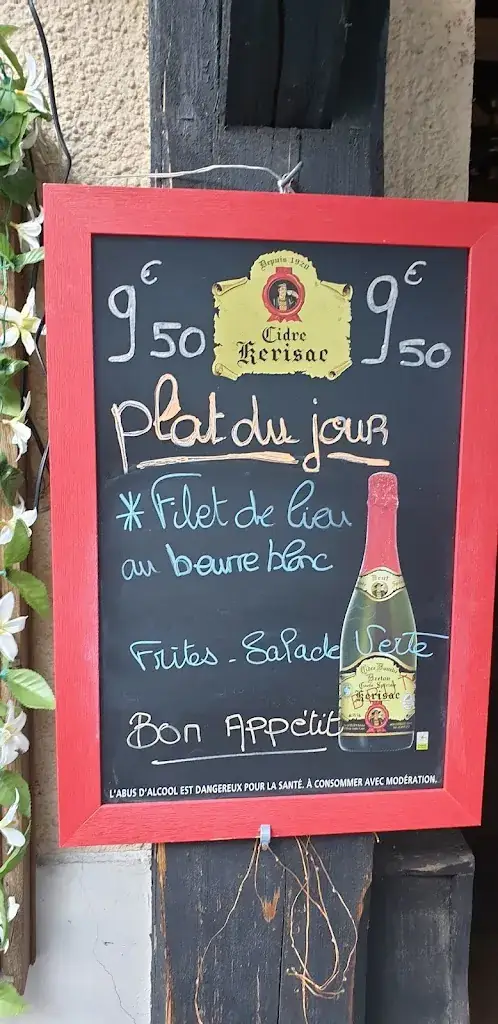 9€50
Depuis 1920
Cidre
Kerisac
9€50
Plat du jour
* Filet de lieu
au beurre blanc
Brut
Frites - Salade Verte
Cidre Bouché
Breton
Kerisac
Bon Appétit
L'ABUS D'ALCOOL EST DANGEREUX POUR LA SANTÉ. À CONSOMMER AVEC MODÉRATION.